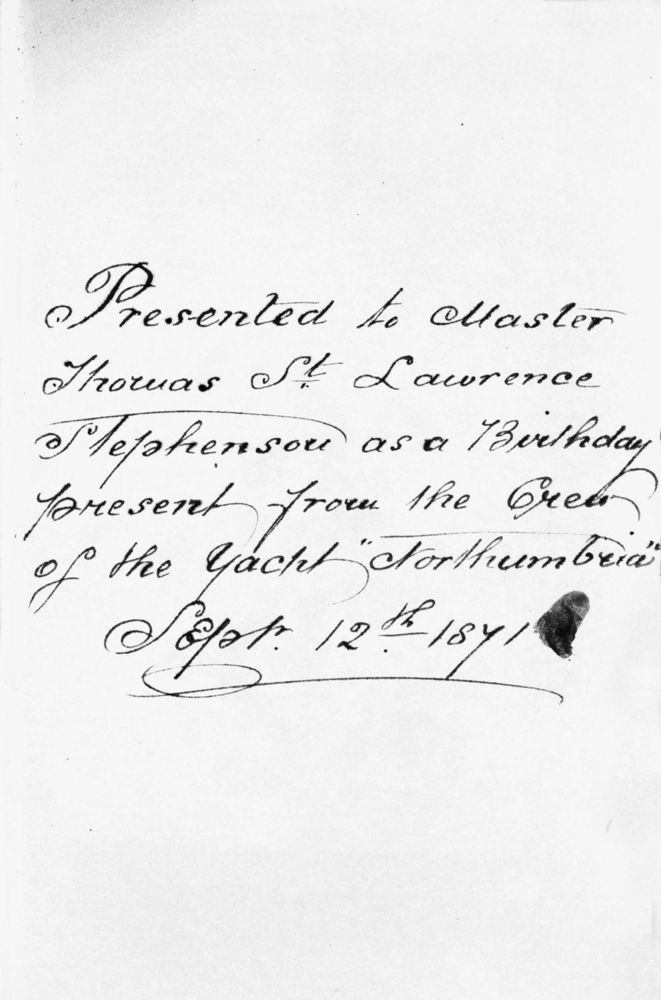 Presented to Master
Thomas St. Lawrence
Stephenson as a Birthday
present from the Crew
of the Yacht "Northumbria"
Sept. 12th 1871